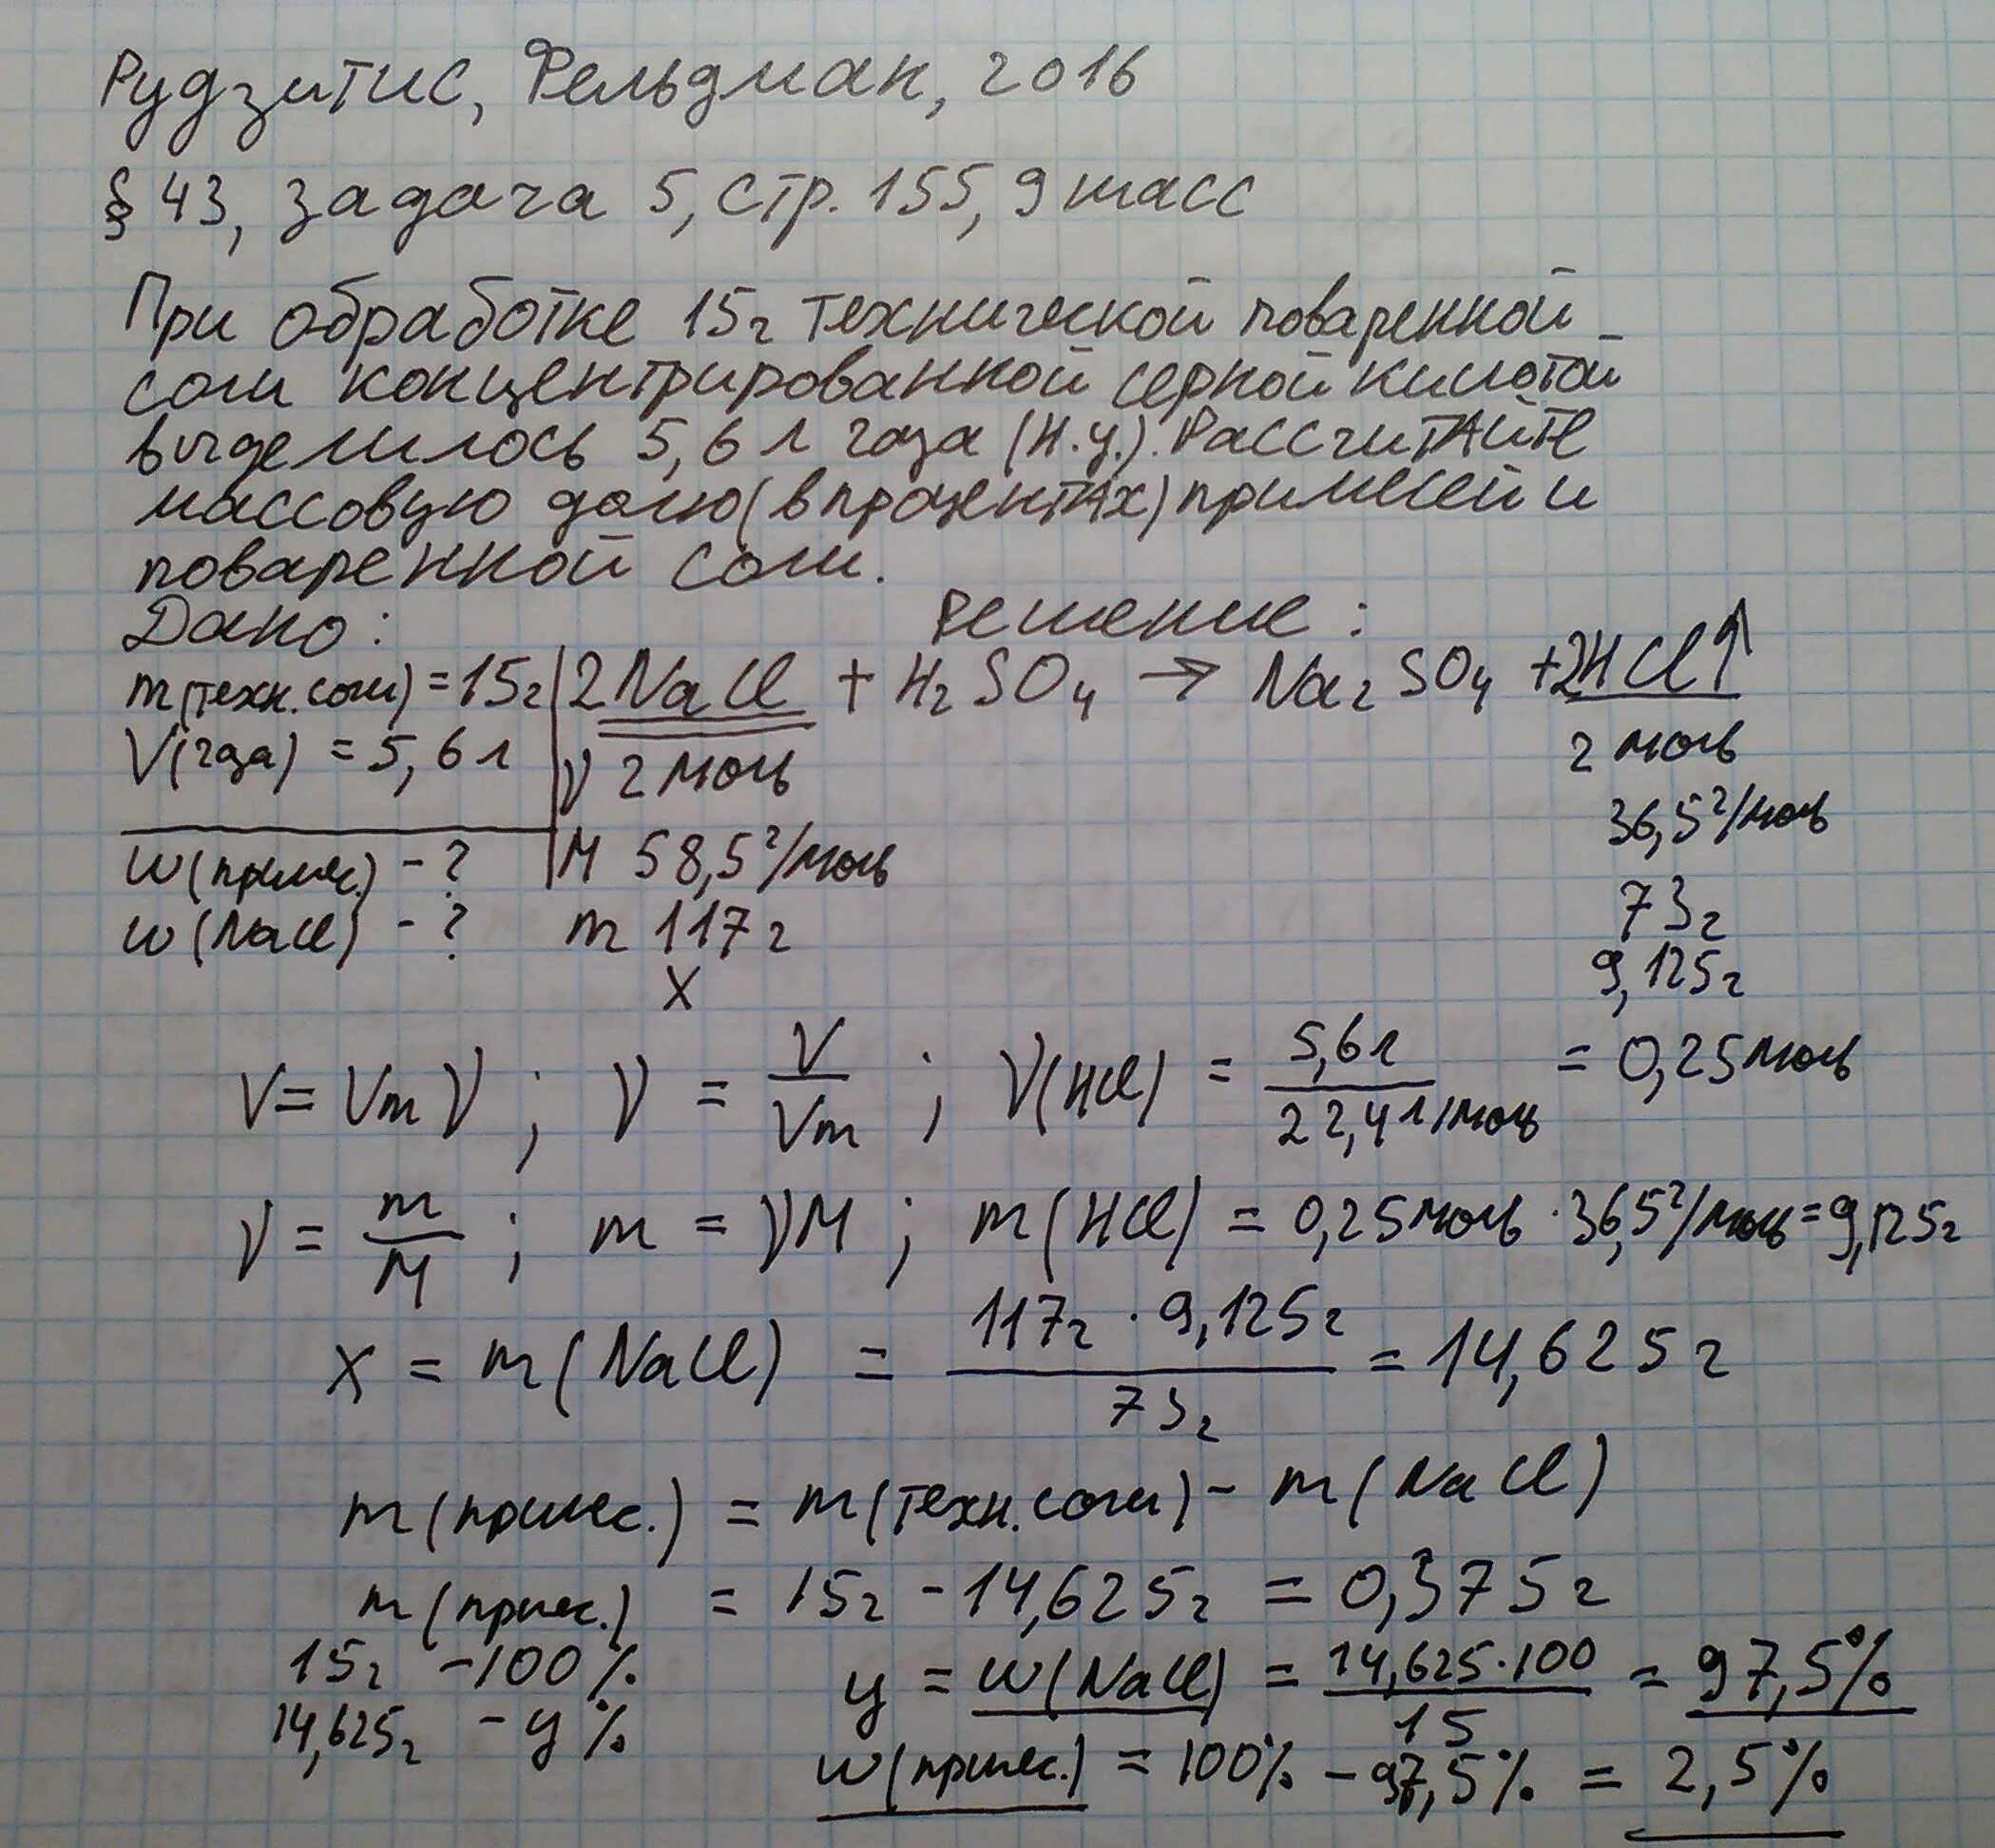 Рудзитис, Фельдман, 2016
§ 43, задача 5, стр. 155, 9 класс
При обработке 15г технической поваренной
соли концентрированной серной кислотой
выделилось 5,6 л газа (н.у.). Рассчитайте
массовую долю (в процентах) примесей и
поваренной соли.
Дано: Решение:
m(техн. соли) = 15г 2NaCl + H₂SO₄ → Na₂SO₄ + 2HCl↑
V(газа) = 5,6 л ν 2 моль 2 моль
w(примес.) - ? M 58,5 г/моль 36,5 г/моль
w(NaCl) - ? m 117 г 73г
x 9,125г
V = Vm ν ; ν = V/Vm ; ν(HCl) = 5,6 л / 22,4 л/моль = 0,25 моль
ν = m/M ; m = νM ; m(HCl) = 0,25 моль · 36,5 г/моль = 9,125г
x = m(NaCl) = 117г · 9,125г / 73г = 14,625 г
m(примес.) = m(техн. соли) - m(NaCl)
m(примес.) = 15г - 14,625г = 0,375г
15г - 100%
14,625г - y%
y = w(NaCl) = 14,625·100 / 15 = 97,5%
w(примес.) = 100% - 97,5% = 2,5%